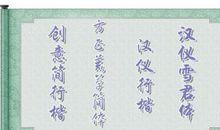 汉仪雪君体
汉仪行楷
方正藏体简体
创意简行楷